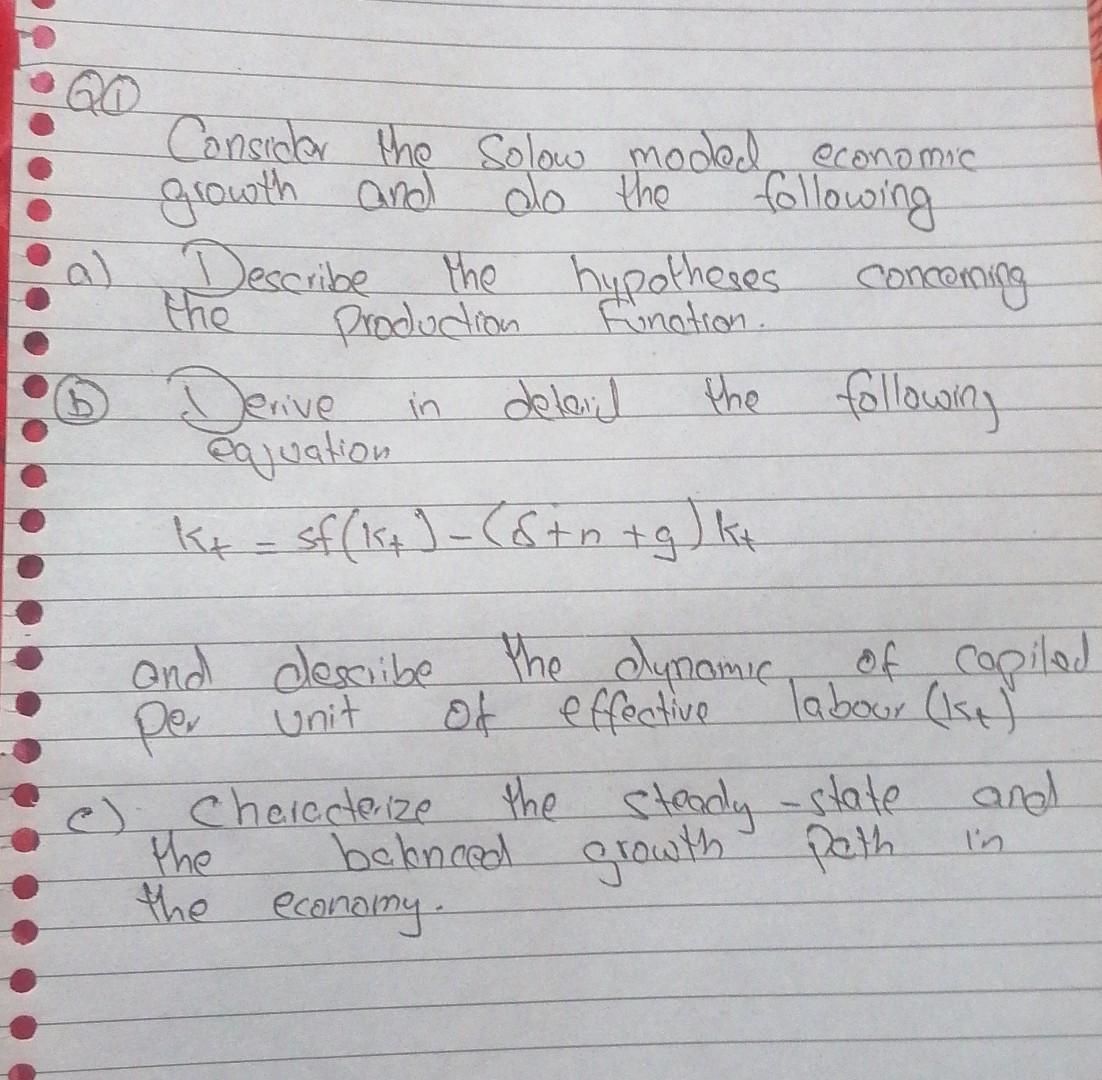 Q①
Consider the Solow moded economic
growth and do the following
a) Describe the hypotheses concerning
the production Function.
ⓑ Derive in detail the following
equation
Kt = sf(Kt) - (δ+n+g) Kt
and describe the dynamic of capilad
per unit of effective labour (Kt)
c) Cheracterize the steady-state and
the balanced growth path in
the economy.